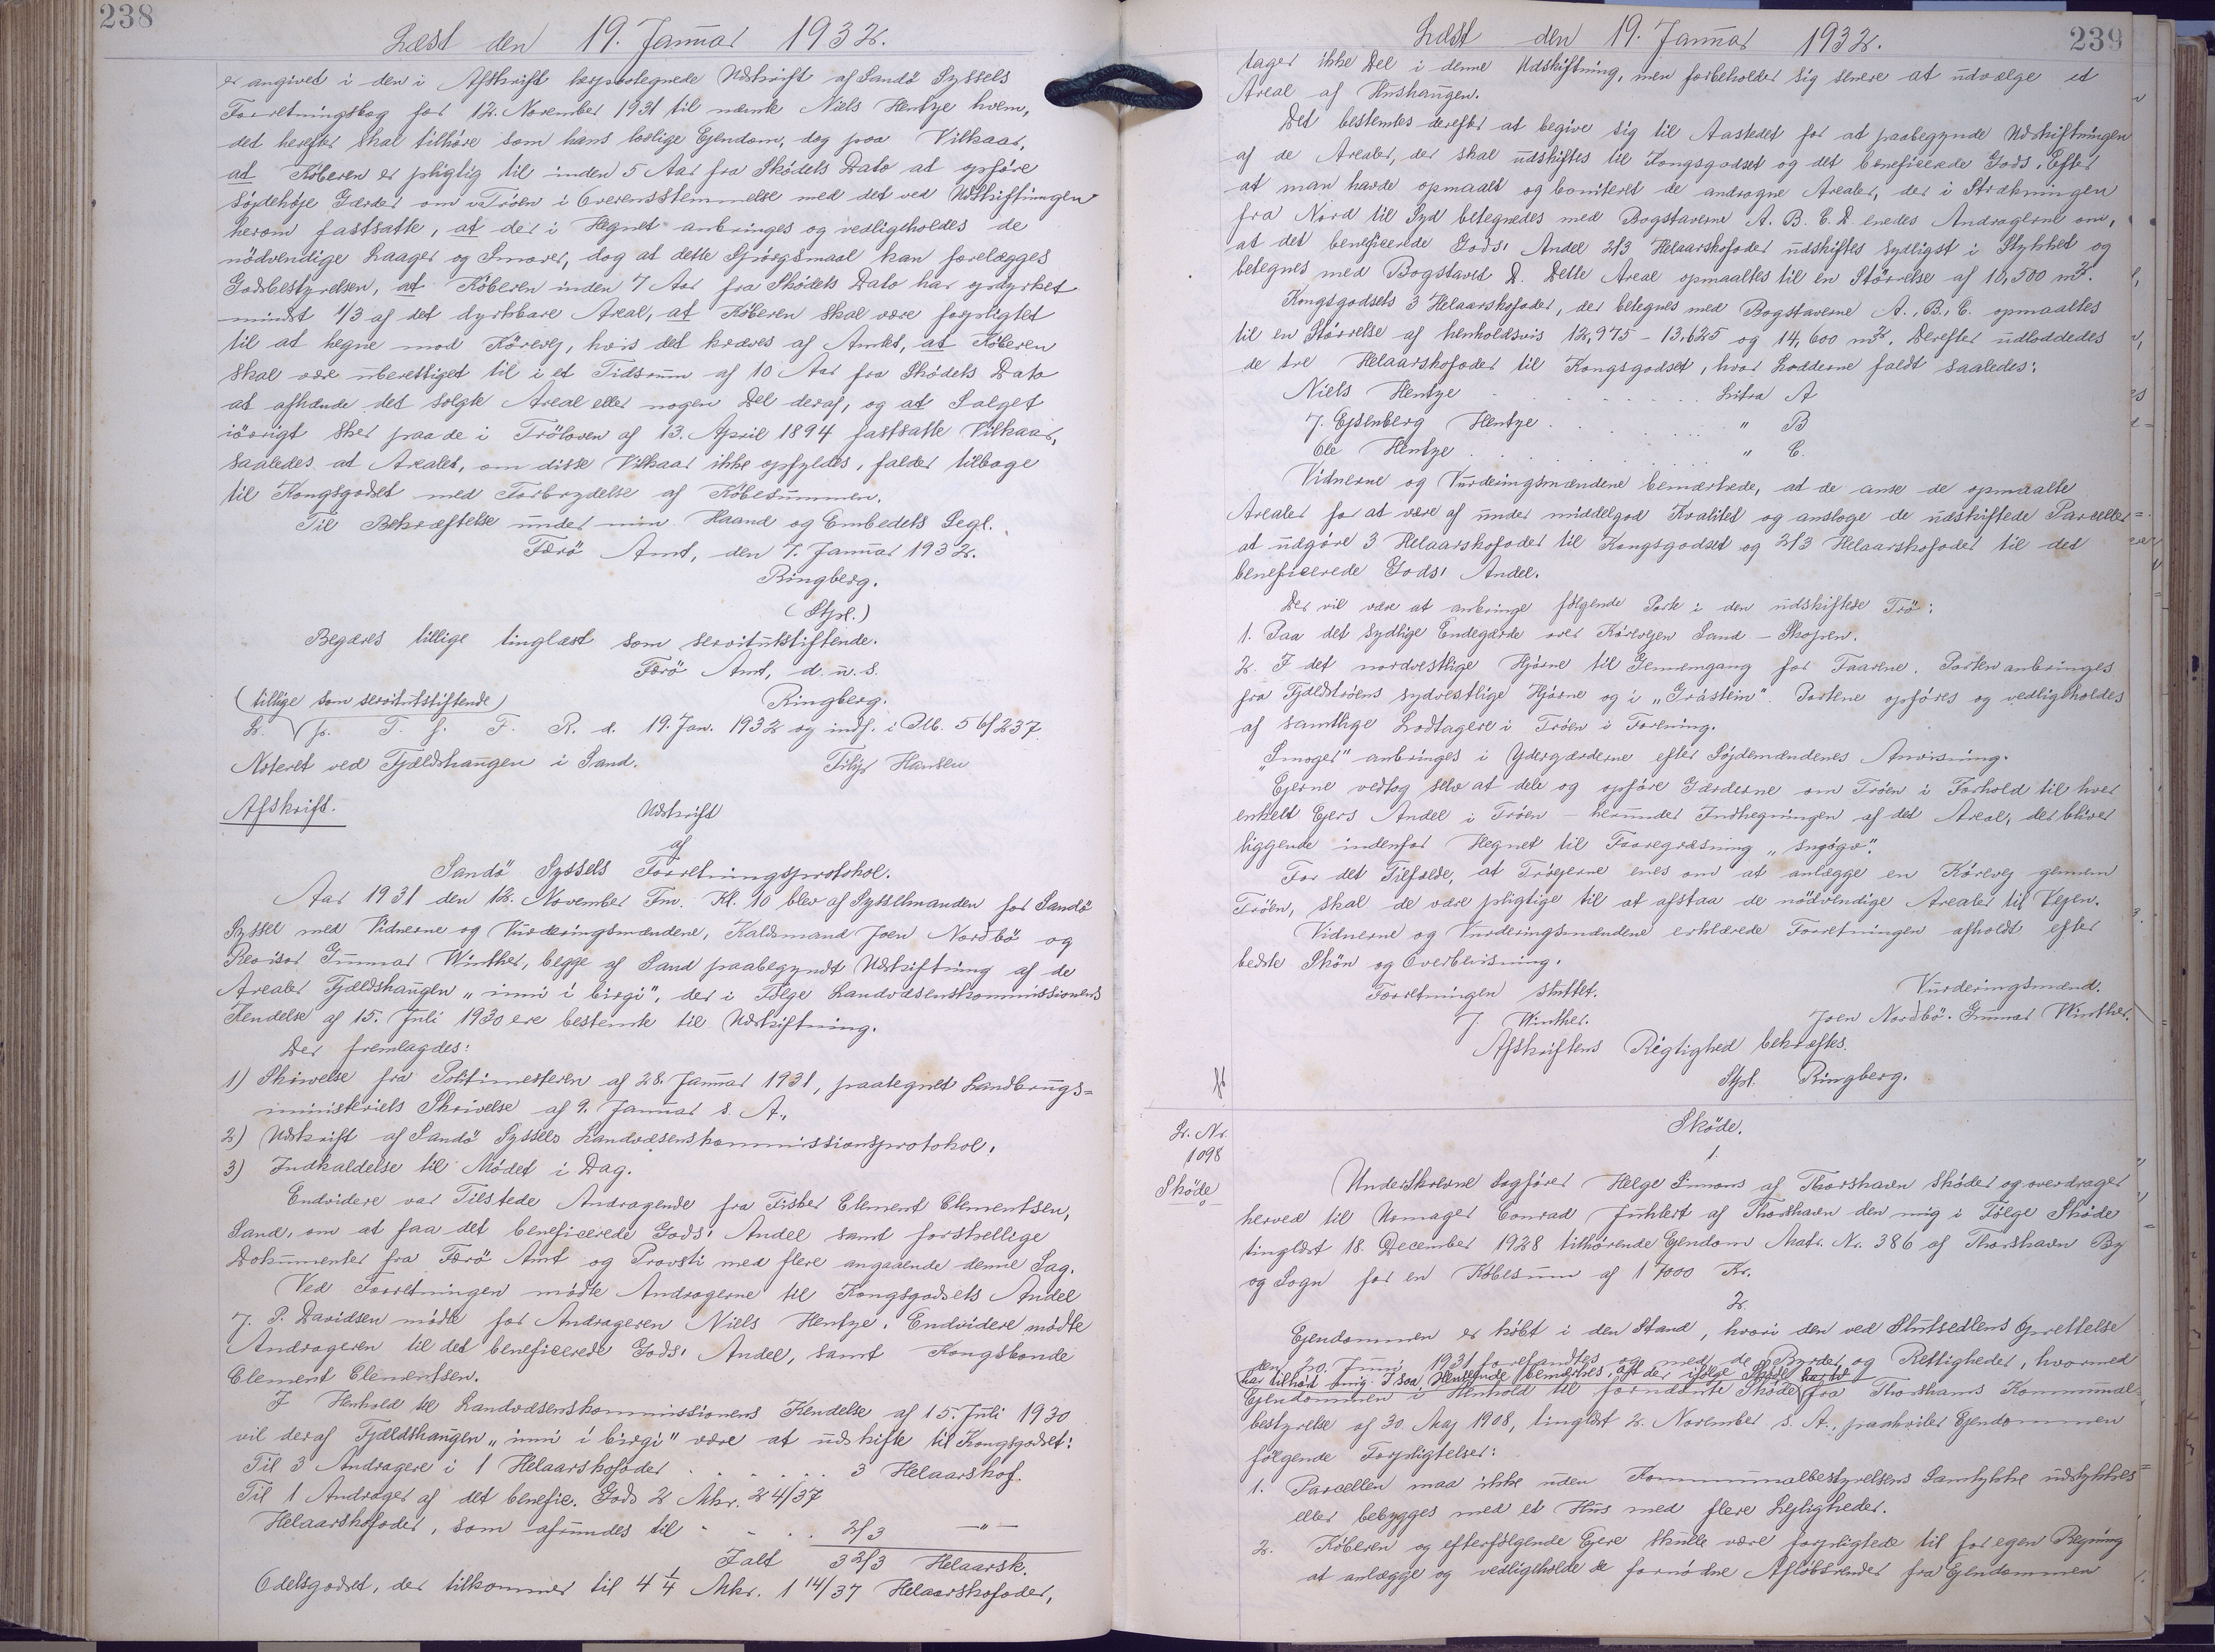 238
Læst den 19. Januar 1932.
er angivet i den i Afskrift hespaategnede Udskrift af Sandö Syssels
Forretningsbog for 12. November 1931 til nævnte Niels Hentze hvem,
det herefter skal tilhöre som hans lovlige Ejendom, dog paa Vilkaar,
at Köberen er pligtig til inden 5 Aar fra Skødets Dato at opføre
söjdehöje Gærder om Tröen i Overensstemmelse med det ved Udskiftningen
herom fastsatte, at der i Hegnet anbringes og vedligeholdes de
nödvendige Laager og Smover, dog at dette Spörgsmaal kan forelægges
Godsbestyrelsen, at Köberen inden 7 Aar fra Skødets Dato har opdyrket
mindst 1/3 af det dyrkbare Areal, at Köberen skal være forpligtet
til at hegne mod Körevej, hvis det kræves af Amtet, at Köberen
skal være uberettiget til i et Tidsrum af 10 Aar fra Skødets Dato
at afhænde det solgte Areal eller nogen Del deraf, og at Salget
iövrigt sker paa de i Tröloven af 13. April 1894 fastsatte Vilkaar,
saaledes at Arealet, om disse Vilkaar ikke opfyldes, falder tilbage
til Kongsgodset med Forbrydelse af Köbesummen.
Til Bekræftelse under min Haand og Embedets Segl.
Færö Amt, den 7. Januar 1932.
Ringberg.
(Stpl.)
Begæres tillige tinglæst som servitutstiftende.
Færö Amt, d. u. s.
Ringberg.
(tillige som servitutstiftende)
L. p. T. f. F. R. d. 19. Jan. 1932 og indf. i Plb. 56/237.
Noteret ved Fjældshaugen i Sand.
Hansen
Afskrift.
Udskrift
af
Sandö Syssels Forretningsprotokol.
Aar 1931 den 12. November Fm. Kl. 10 blev af Sysselmanden for Sandö
Syssel med Vidnerne og Vurderingsmændene, Kaldsmand Joen Nordbö og
Revisor Gunnar Winther, begge af Sand paabegyndt Udskiftning af de
Arealer Fjældshaugen "inni í birgi", der i Følge Landvæsenskommissionens
Kendelse af 15. Juli 1930 ere bestemte til Udskiftning.
Der fremlagdes:
1) Skrivelse fra Politimesteren af 28. Januar 1931, paategnet Landbrugs=
ministeriets Skrivelse af 9. Januar s. A.,
2) Udskrift af Sandö Syssels Landvæsenskommissionsprotokol.
3) Indkaldelse til Mödet i Dag.
Endvidere var Tilstede Andragende fra Fisker Clement Clementsen,
Sand, om at faa det beneficerede Gods' Andel samt forskellige
Dokumenter fra Færö Amt og Provsti med flere angaaende denne Sag.
Ved Forretningen mödte Andragerne til Kongsgodsets Andel
J. P. Davidsen mödte for Andrageren Niels Hentze. Endvidere mödte
Andrageren til det beneficerede Gods' Andel, samt Kongsbonde
Clement Clementsen.
I Henhold til Landvæsenskommissionens Kendelse af 15. Juli 1930
vil deraf Fjældshaugen "inni í birgi" være at udskifte til Kongsgodset:
Til 3 Andragere i 1 Helaarskofoder . . . . . . 3 Helaarskof.
Til 1 Andrager af det benefic. Gods 2 Mkr. 24/37
Helaarskofoder, som afrundes til - - . . 2/3 —"—
Ialt 3 2/3 Helaarsk.
Odelsgodset, der tilkommer til 4 1/4 Mkr. 1 14/37 Helaarskofoder,
239
Læst den 19. Januar 1932.
tager ikke Del i denne Udskiftning, men forbeholder sig senere at udvælge et
Areal af Hushaugen.
Det bestemtes derefter at begive sig til Aastedet for at paabegynde Udskiftningen
af de Arealer, der skal udskiftes til Kongsgodset og det beneficerede Gods. Efter
at man havde opmaalt og boniteret de andragne Arealer, der i Strækningen
fra Nord til Syd betegnedes med Bogstaverne A. B. C. D enedes Andragerne om,
at det beneficerede Gods' Andel 2/3 Helaarskofoder udskiftes sydligst i Stykket og
betegnes med Bogstavet D. Dette Areal opmaaltes til en Størrelse af 10,500 m2.
Kongsgodsets 3 Helaarskofoder, der betegnes med Bogstaverne A., B., C. opmaaltes
til en Størrelse af henholdsvis 12,975 - 13,625 og 14,600 m2. Derefter udloddedes
de tre Helaarskofoder til Kongsgodset, hvor Lodderne faldt saaledes:
Niels Hentze . . . . . . . . Litra A
J. Ejsenberg Hentze . . . . . . " B
Ole Hentze . . . . . . . . " C.
Vidnerne og Vurderingsmændene bemærkede, at de anse de opmaalte
Arealer for at være af under middelgod Kvalitet og ansloge de udskiftede Parceller
at udgöre 3 Helaarskofoder til Kongsgodset og 2/3 Helaarskofoder til det
beneficerede Gods' Andel.
Der vil være at anbringe følgende Porte i den udskiftede Trö:
1. Paa det sydlige Endegærde over Körevejen Sand - Skopen.
2. I det nordvestlige Hjörne til Gennemgang for Faarene. Porten anbringes
fra Fjældströens sydvestlige Hjörne og i "Gråstein". Portene opföres og vedligeholdes
af samtlige Lodtagere i Tröen i Forening.
"Smoger" anbringes i Ydergærderne efter Söjdemændenes Anvisning.
Ejerne vedtog selv at dele og opföre Gærderne om Tröen i Forhold til hver
enkelt Ejers Andel i Tröen - herunder Indhegningen af det Areal, der bliver
liggende indenfor Hegnet til Faaregræsning
For det Tilfælde, at Tröejerne enes om at anlægge en Körevej gennem
Tröen, skal de være pligtige til at afstaa de nödvendige Arealer til Vejen.
Vidnerne og Vurderingsmændene erklærede Forretningen afholdt efter
bedste Skön og Overbevisning.
Forretningen sluttet.
Vurderingsmænd.
J. Winther.
Joen Nordbö. Gunnar Winther.
Afskriftens Rigtighed bekræftes.
Stpl. Ringberg.
Skøde.
L. Nr.
1098
Skøde
1.
Underskrevne Sagfører Helge Simons af Thorshavn skøder og overdrager
herved til Urmager Conrad Juhlert af Thorshavn den mig i Følge Skøde
tinglæst 18. December 1928 tilhørende Ejendom Matr. Nr. 386 af Thorshavn By
og Sogn for en Købesum af 17000 Kr.
2.
Ejendommen er købt i den Stand, hvori den ved Slutsedlens Oprettelse
den 20. Juni 1931 forefandtes og med de Byrder og Rettigheder, hvormed
har tilhørt mig. I saa Henseende bemærkes, at der ifølge Skøde
Ejendommen i Henhold til fornævnte Skøde fra Thorshavns Kommunal=
bestyrelse af 30. Maj 1908, tinglæst 2. November s. A., paahviler Ejendommen
følgende Forpligtelser:
1. Parcellen maa ikke uden Kommunalbestyrelsens Samtykke udstykkes
eller bebygges med et Hus med flere Lejligheder.
2. Köberen og efterfølgende Ejere skulle være forpligtede til for egen Regning
at anlægge og vedligeholde de fornødne Afløbsrender fra Ejendommen